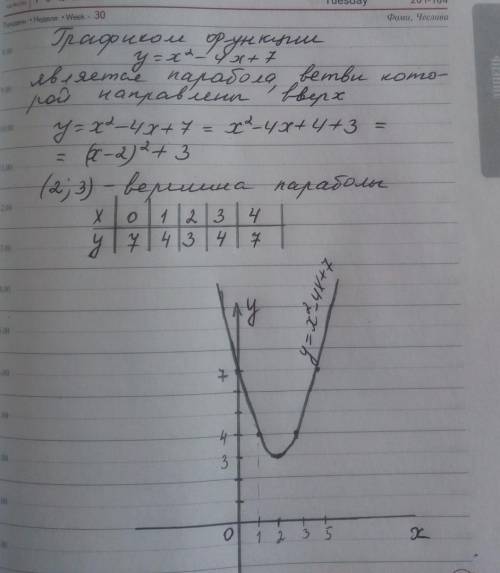 Неделя • Week - 30
Tuesday
201-164
Фами, Чеслива
Графиком функции
y=x²-4x+7
является парабола, ветви кото-
рой направлены вверх
y=x²-4x+7 = x²-4x+4+3 =
= (x-2)²+3
(2;3) - вершина параболы
x | 0 | 1 | 2 | 3 | 4
y | 7 | 4 | 3 | 4 | 7
y
y=x²-4x+7
7
4
3
0 1 2 3 5 x